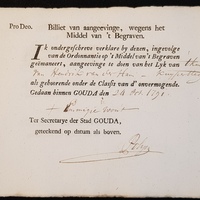 Pro Deo. Billiet van aangeevinge, wegens het
Middel van 't Begraven.
IK ondergeschreve verklare by deezen, ingevolge
van de Ordonnantie op 't Middel van 't Begraven
geëmaneert, aangeevinge te doen van het Lyk van
Van Hendrik van der
als gehoorende onder de Classis van d' onvermogende.
Gedaan binnen GOUDA den 24 Oct. 1791.
Ter Secretarye der Stad GOUDA,
geteekend op datum als boven.